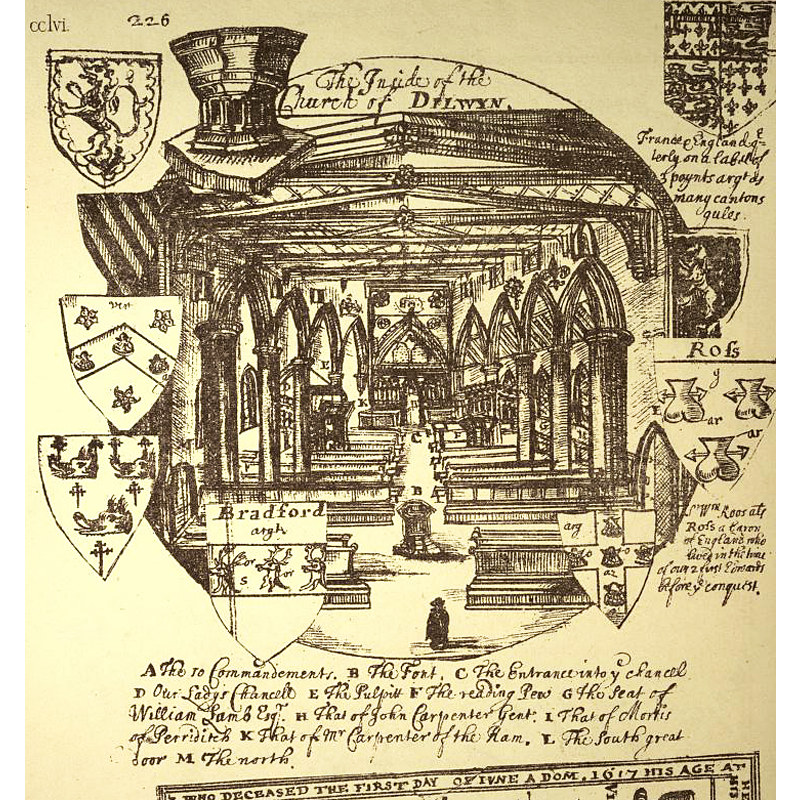 cclvi.
226
The Inside of the
Church of DILWYN.
France & England q
terly on a label of
3 poynts argt as
many cantons
gules.
ver
Ross
y
ar
ar
Sr Wm Roos als
Ross a Baron
of England who
lived in the time
of our 2 first Edwards
before ye conquest.
Bradford
argt
or
s
or
arg
az
A The 10 Commandements. B The Font. C The Entrance into ye chancel
D Our Ladys Chancell E The Pulpitt F The reading Pew G The seat of
William Lamb Esqr. H That of John Carpenter Gent. I That of Mortis
of Perriditch K That of Mr Carpenter of the Ham. L The South great
door M The north.
WHO DECEASED THE FIRST DAY OF IVNE A DOM. 1617 HIS AGE AT